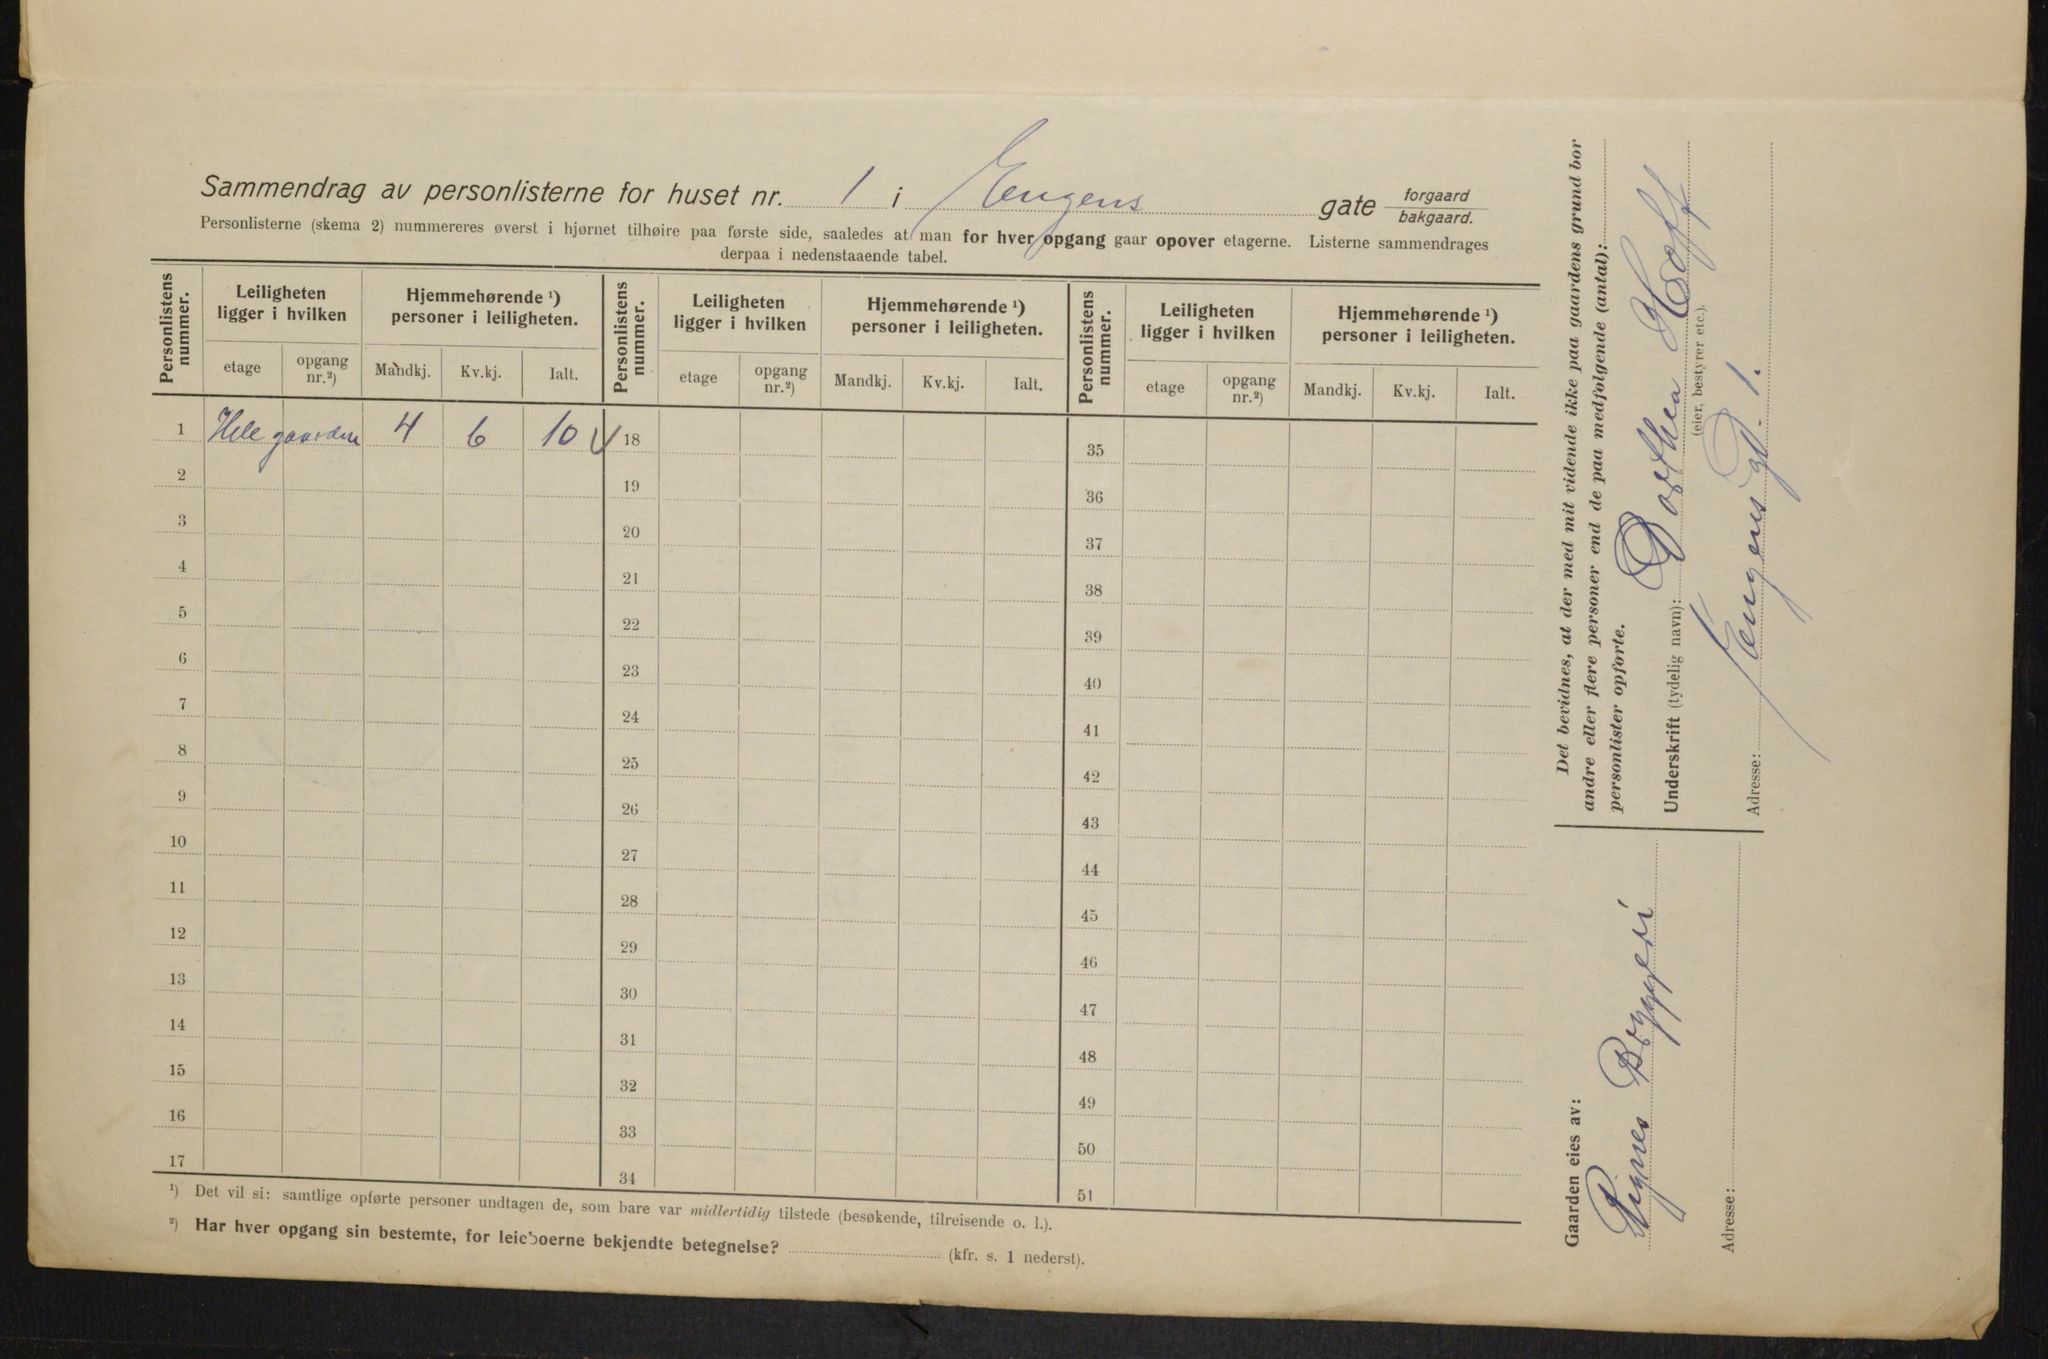 Sammendrag av personlisterne for huset nr. 1 i Eugens gate forgaard
bakgaard.
Personlisterne (skema 2) nummereres øverst i hjørnet tilhøire paa første side, saaledes at man for hver opgang gaar opover etagerne. Listerne sammendrages
derpaa i nedenstaaende tabel.
Personlistens nummer. Leiligheten ligger i hvilken Hjemmehørende ¹) personer i leiligheten. Personlistens nummer. Leiligheten ligger i hvilken Hjemmehørende ¹) personer i leiligheten. Personlistens nummer. Leiligheten ligger i hvilken Hjemmehørende ¹) personer i leiligheten.
etage opgang nr.²) Mandkj. Kv.kj. Ialt. etage opgang nr.²) Mandkj. Kv.kj. Ialt. etage opgang nr.²) Mandkj. Kv.kj. Ialt.
1 Hele gaarden 4 6 10 18 35
2 19 36
3 20 37
4 21 38
5 22 39
6 23 40
7 24 41
8 25 42
9 26 43
10 27 44
11 28 45
12 29 46
13 30 47
14 31 48
15 32 49
16 33 50
17 34 51
¹) Det vil si: samtlige opførte personer undtagen de, som bare var midlertidig tilstede (besøkende, tilreisende o. l.).
²) Har hver opgang sin bestemte, for leieboerne bekjendte betegnelse? (kfr. s. 1 nederst).
Det bevidnes, at der med mit vidende ikke paa gaardens grund bor
andre eller flere personer end de paa medfølgende (antal):
personlister opførte.
Underskrift (tydelig navn): Dorthea Hoff
(eier, bestyrer etc.).
Adresse: Eugensgt. 1.
Gaarden eies av:
Bryggeri
Adresse: